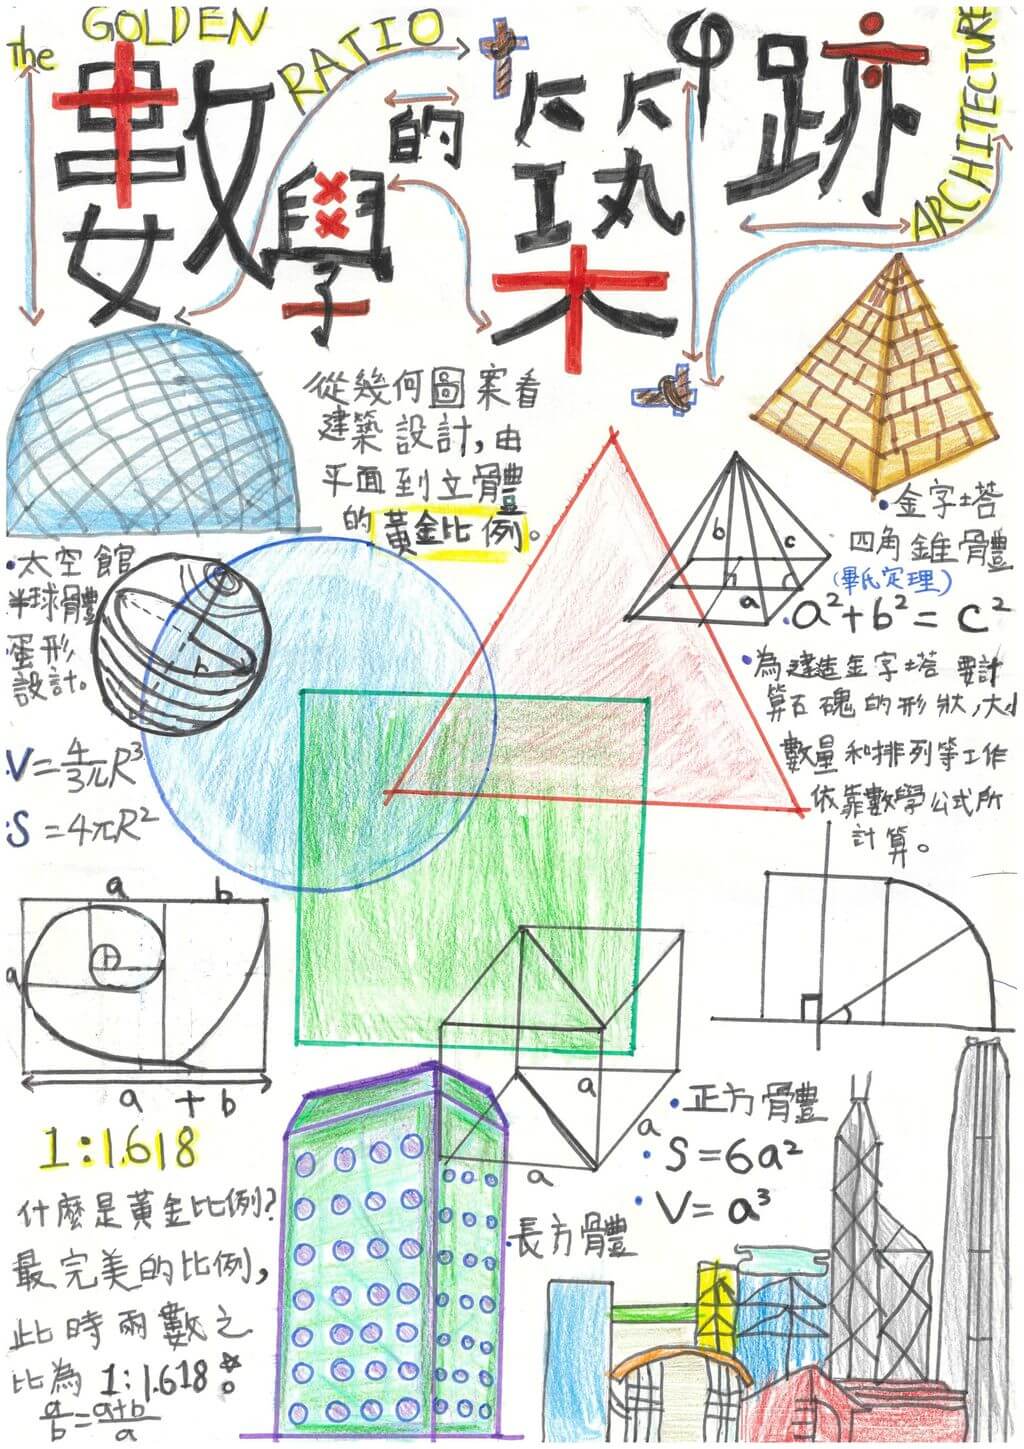 The GOLDEN RATIO
ARCHITECTURE
數學的築跡
從幾何圖案看
建築設計,由
平面到立體
的黃金比例。
•太空館
半球體
蛋形
設計。
h
•V=4/3πR³
•S=4πR²
•金字塔
四角錐體
(畢氏定理)
•a²+b²=c²
b
c
a
•為建造金字塔要計
算石磈的形狀,大小
數量和排列等工作
依靠數學公式所
計算。
a b
a
a+b
1:1.618
什麼是黃金比例?
最完美的比例,
此時兩數之
比為1:1.618。
a/b=(a+b)/a
a
a
a
•正方體
•S=6a²
•V=a³
•長方體